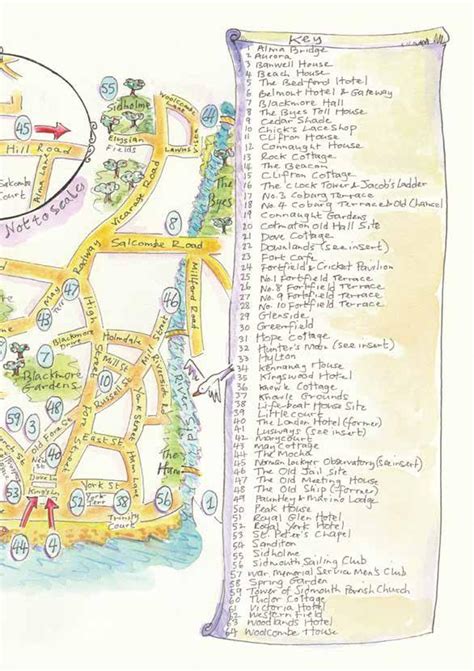 Key
1 Alma Bridge
2 Aurora
3 Banwell House
4 Beach House
5 The Bedford Hotel
6 Belmont Hotel & Gateway
7 Blackmore Hall
8 The Byes Toll House
9 Cedar Shade
10 Chick's Lace Shop
11 Clifton House
12 Connaught House
13 Rock Cottage
14 The Beacon
15 Clifton Cottage
16 The Clock Tower & Jacob's Ladder
17 No. 3 Coburg Terrace
18 No 4 Coburg Terrace & Old Chancel
19 Connaught Gardens
20 Cotmaton Old Hall Site
21 Dove Cottage
22 Downlands (see insert)
23 Fort Cafe
24 Fortfield & Cricket Pavilion
25 No.1 Fortfield Terrace
26 No. 8 Fortfield Terrace
27 No. 9 Fortfield Terrace
28 No. 10 Fortfield Terrace
29 Glenside
30 Greenfield
31 Hope Cottage
32 Hunter's Moon (see insert)
33 Hylton
34 Kennaway House
35 Kingswood Hotel
36 Cottage
37 Knowle Grounds
38 Lifeboat House Site
39 Little court
40 The London Hotel (former)
41 Lusways (see insert)
42 Marycourt
43 Mancottage
44 The Mocha
45 Norman Lockyer Observatory (see insert)
46 The Old Jail site
47 The Old Meeting House
48 The Old Ship (former)
49 Pauntley & Marine Lodge
50 Peak House
51 Royal Glen Hotel
52 Royal York Hotel
53 St. Peter's Chapel
54 Sanditon
55 Sidholme
56 Sidmouth Sailing Club
57 War Memorial Services Men's Club
58 Spring Garden
59 Tower of Sidmouth Parish Church
60 Tudor Cottage
61 Victoria Hotel
62 Western Field
63 Woodlands Hotel
64 Woolcombe House
45
Hill Road
Alma Lane
Salcombe
Court
Not to Scale
55
Sidholme
Elysian
Fields
Woolcombe
Lane
Lawns
64
The
Byes
Vicarage Road
8
Salcombe Road
Radway
May
Terr
High
46
Millford Road
Holmdale
Street
Blackmore
Gardens
Mill St
10
Russell St
Riverside Rd
River Sid
York Street
Ham Lane
The
Ham
39
48
40
Old Fore St
Fore Street
East St
53
Dove Ln
King's Ln
York St
52
York
Terr
38
56
Trinity
Court
1
44
4